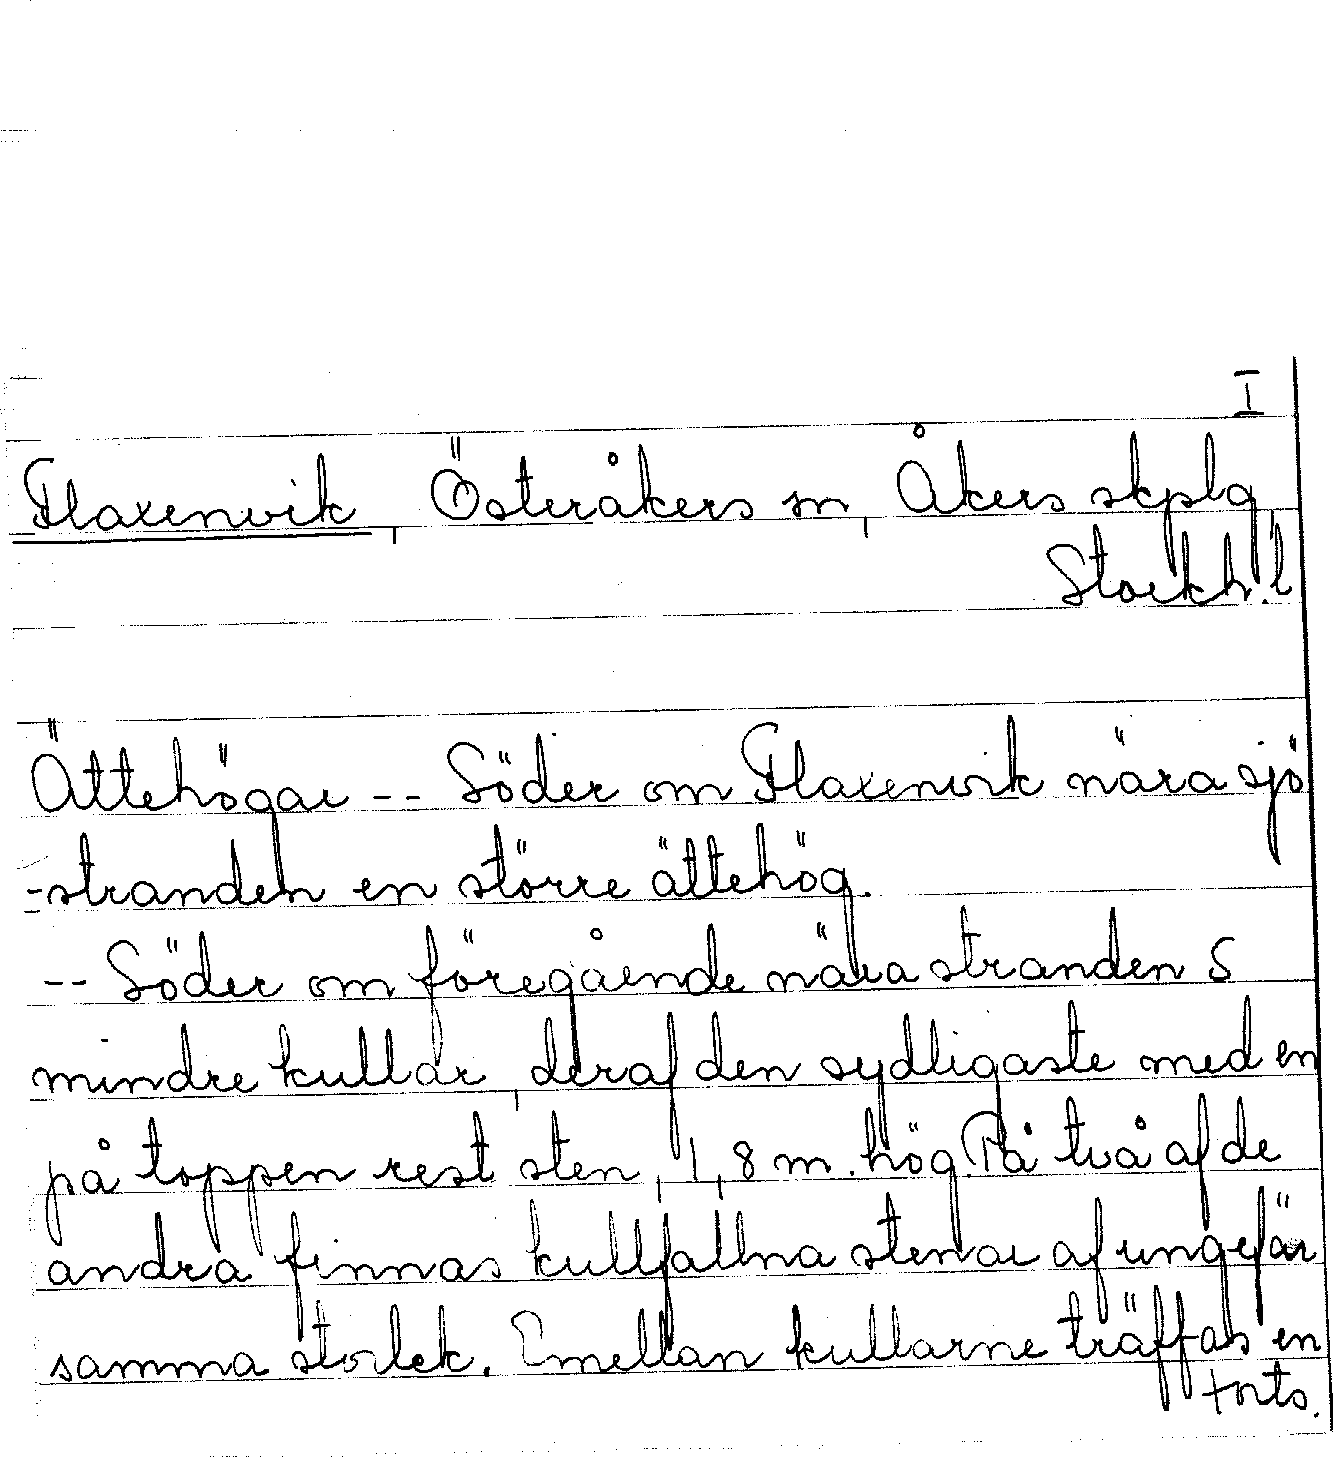 I
Flaxenvik, Österåkers sn, Åkers skplg,
Stockh. l
Ättehögar -- Söder om Flaxenvik nära sjö
-stranden en större ättehög.
-- Söder om föregående nära stranden 5
mindre kullar, deraf den sydligaste med en
på toppen rest sten, 1,8 m. hög. På två af de
andra finnas kullfallna stenar af ungefär
samma storlek. Emellan kullarne träffas en
forts.